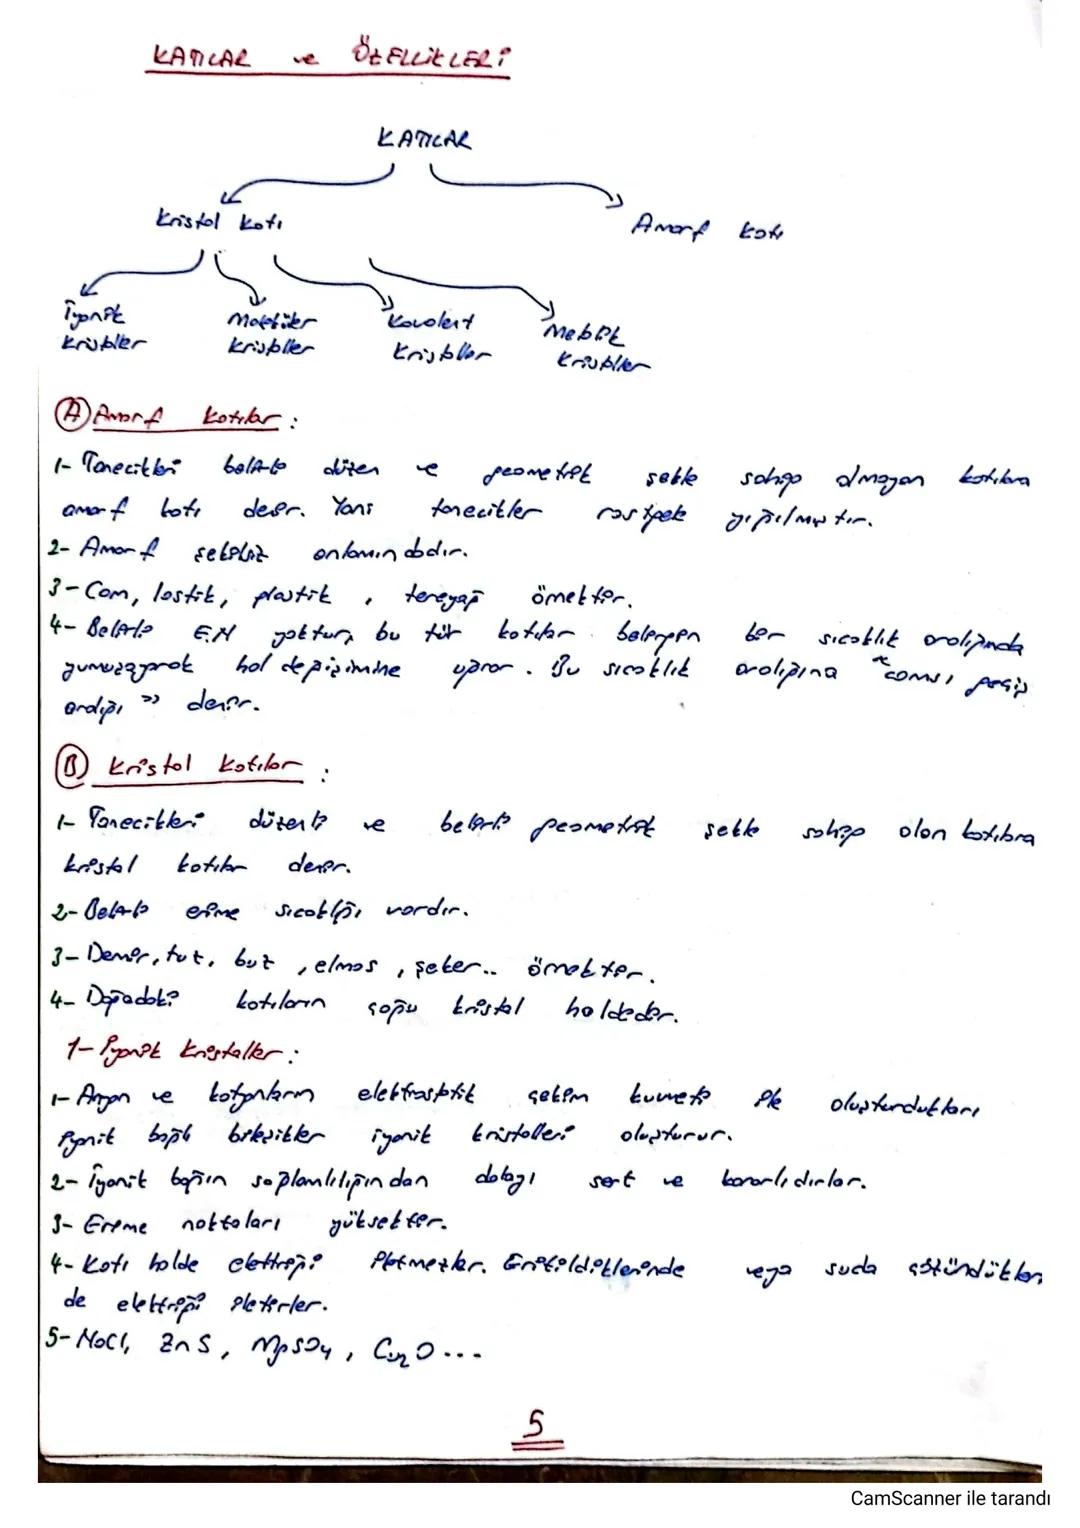 KATILAR ve ÖZELLİKLERİ
KATILAR
Kristal Katı
Amorf Katı
İyonik Kristaller
Moleküler Kristaller
Kovalent Kristaller
Metalik Kristaller
(A) Amorf Katılar :
1- Tanecikleri belirli düzen ve geometrik şekle sahip olmayan katılara
amorf katı denir. Yani tanecikler rastgele yığılmıştır.
2- Amorf şekilsiz anlamındadır.
3- Cam, lastik, plastik, tereyağı örnektir.
4- Belirli E.N yoktur, bu tür katılar belirlenen bir sıcaklık aralığında
yumuşayarak hal değişimine uğrar. Bu sıcaklık aralığına "camsı geçiş
aralığı" denir.
(B) Kristal Katılar :
1- Tanecikleri düzenli ve belirli geometrik şekle sahip olan katılara
kristal katılar denir.
2- Belirli erime sıcaklığı vardır.
3- Demir, tuz, buz, elmas, şeker.. örnektir.
4- Doğadaki katıların çoğu kristal haldedir.
1- İyonik Kristaller :
1- Anyon ve katyonların elektrostatik çekim kuvveti ile oluşturdukları
iyonik bağlı bileşikler iyonik kristalleri oluşturur.
2- İyonik bağın sağlamlılığından dolayı sert ve kararlıdırlar.
3- Erime noktaları yüksektir.
4- Katı halde elektriği iletmezler. Eritildiklerinde veya suda çözündükleri
de elektriği iletirler.
5- NaCl, ZnS, MgSO₄, Cu₂O...
5
CamScanner ile tarandı